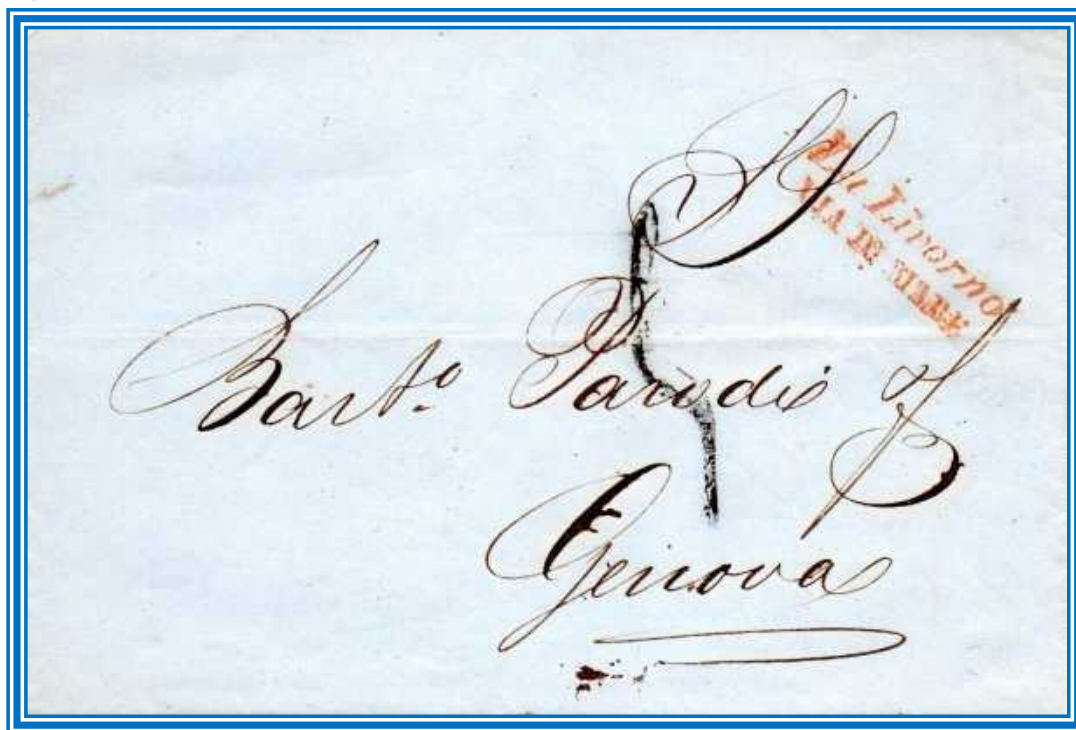 Livorno
VIA DI MARE
Bart.o Parodi
Genova